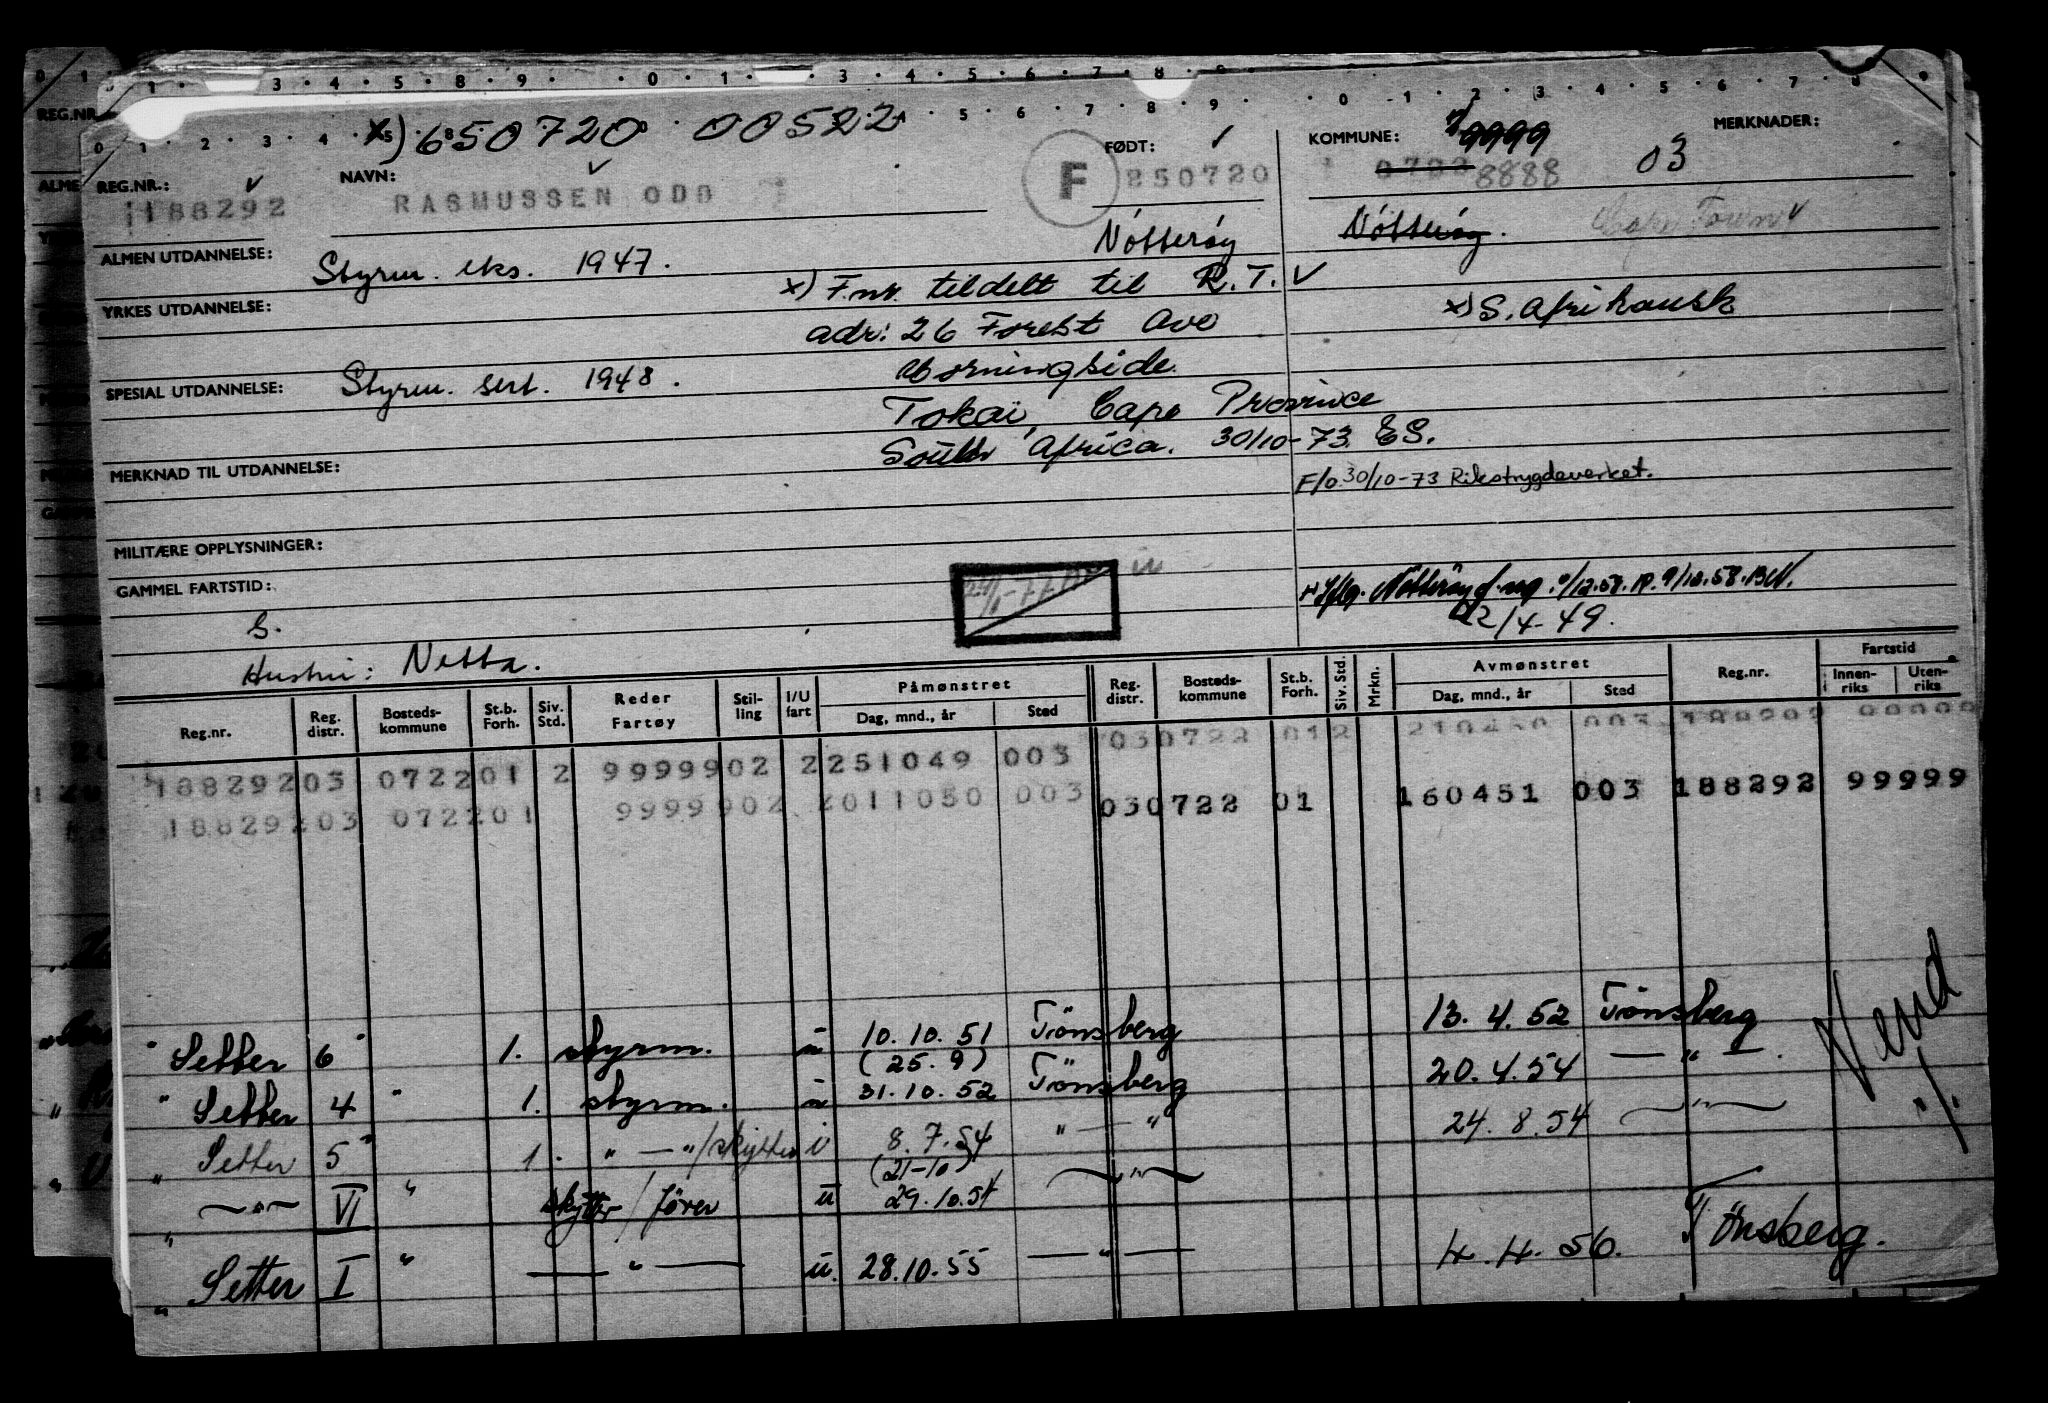 x) 650720 00522
REG.NR.: 188292
NAVN: RASMUSSEN ODD
F
FØDT: 250720
KOMMUNE: 9999
0722 8888
03
MERKNADER:
Nötteröy
Nötteröy.
Cape Town
ALMEN UTDANNELSE:
Styrm. eks. 1947.
x) F.nr. tildelt til R.T.
x) S. Afrikansk
YRKES UTDANNELSE:
adr: 26 Forest Ave
Morningside.
SPESIAL UTDANNELSE: Styrm. sert. 1948.
Tokai, Cape Province
South Africa. 30/10-73 ES.
MERKNAD TIL UTDANNELSE:
F/o 30/10-73 Rikstrygdeverket.
MILITÆRE OPPLYSNINGER:
GAMMEL FARTSTID:
S.
22/4-49.
Hustru: Netta.
Reg.nr. Reg. distr. Bosteds-kommune St.b. Forh. Siv. Std. Reder Fartøy Stil-ling I/U fart Påmønstret Dag, mnd., år Sted Reg. distr. Bosteds-kommune St.b. Forh. Siv. Std. Mrkn. Avmønstret Dag, mnd., år Sted Reg.nr. Fartstid Innen-riks Uten-riks
188292 03 0722 01 2 99999 02 2 251049 003 03 0722 01 2 210450 003 188292 99999
188292 03 0722 01 99999 02 2 011050 003 03 0722 01 160451 003 188292 99999
" Setter 6 " 1. styrm. u 10.10.51 Tönsberg 13.4.52 Tönsberg
(25.9)
" Setter 4 " 1. styrm. u 31.10.52 Tönsberg 20.4.54 — " —.
" Setter 5 " 1. " — " / skytter i 8.7.54 " — " 24.8.54 — " —
(21-10)
" — " — VI " skytter / fører u 29.10.54 — " —
" Setter I " — " — u. 28.10.55 — " — 4.4.56. Tönsberg.
Vend